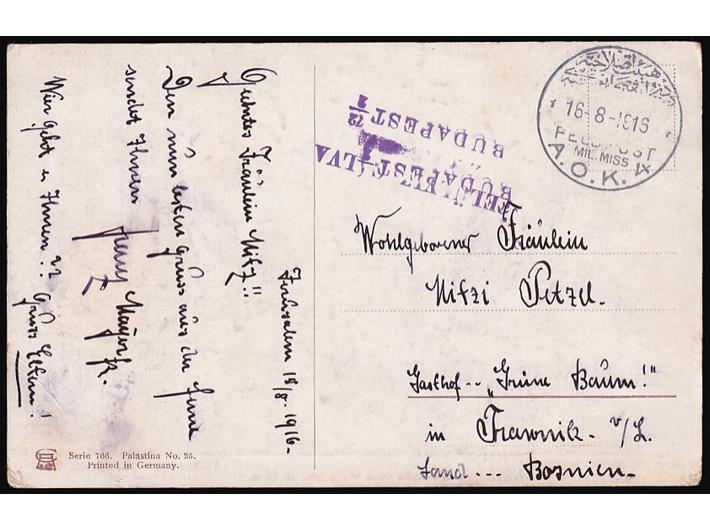 Jerusalem 18/8. 1916.-
Geehrtes Fräulein Mitzi!!
Den besten Gruss aus der Ferne
sendet Ihnen
Mayer
Wie geht es Ihnen?? Gruss Eltern!
Serie 766. Palästina No. 25.
Printed in Germany.
BUDAPEST
BUDAPEST
16-8-1916
FELDPOST
MIL. MISS
A.O.K. 4
Wohlgeborener Fräulein
Mitzi Petzel.
Gasthof -- „Grüne Baum!"
in Trawnik - v/L.
Land --- Bosnien -